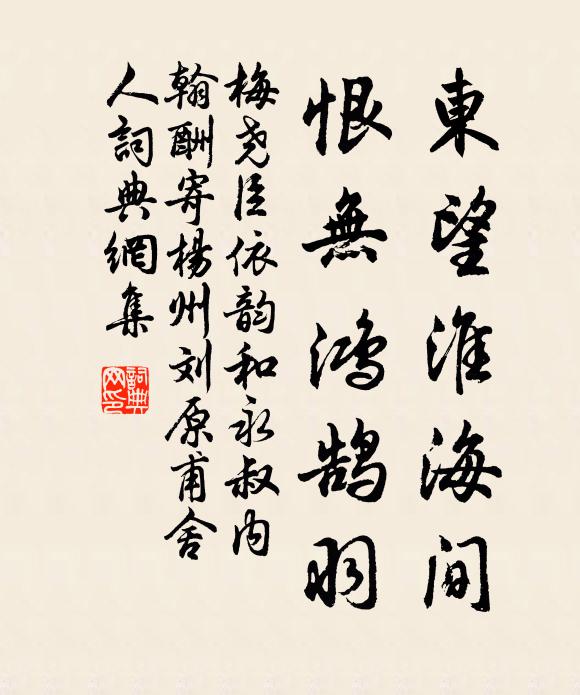 東望淮海間
恨無鴻鵠羽
梅尧臣依韵和永叔内
翰酬寄楊州刘原甫舍
人詞典網集
詞典網印